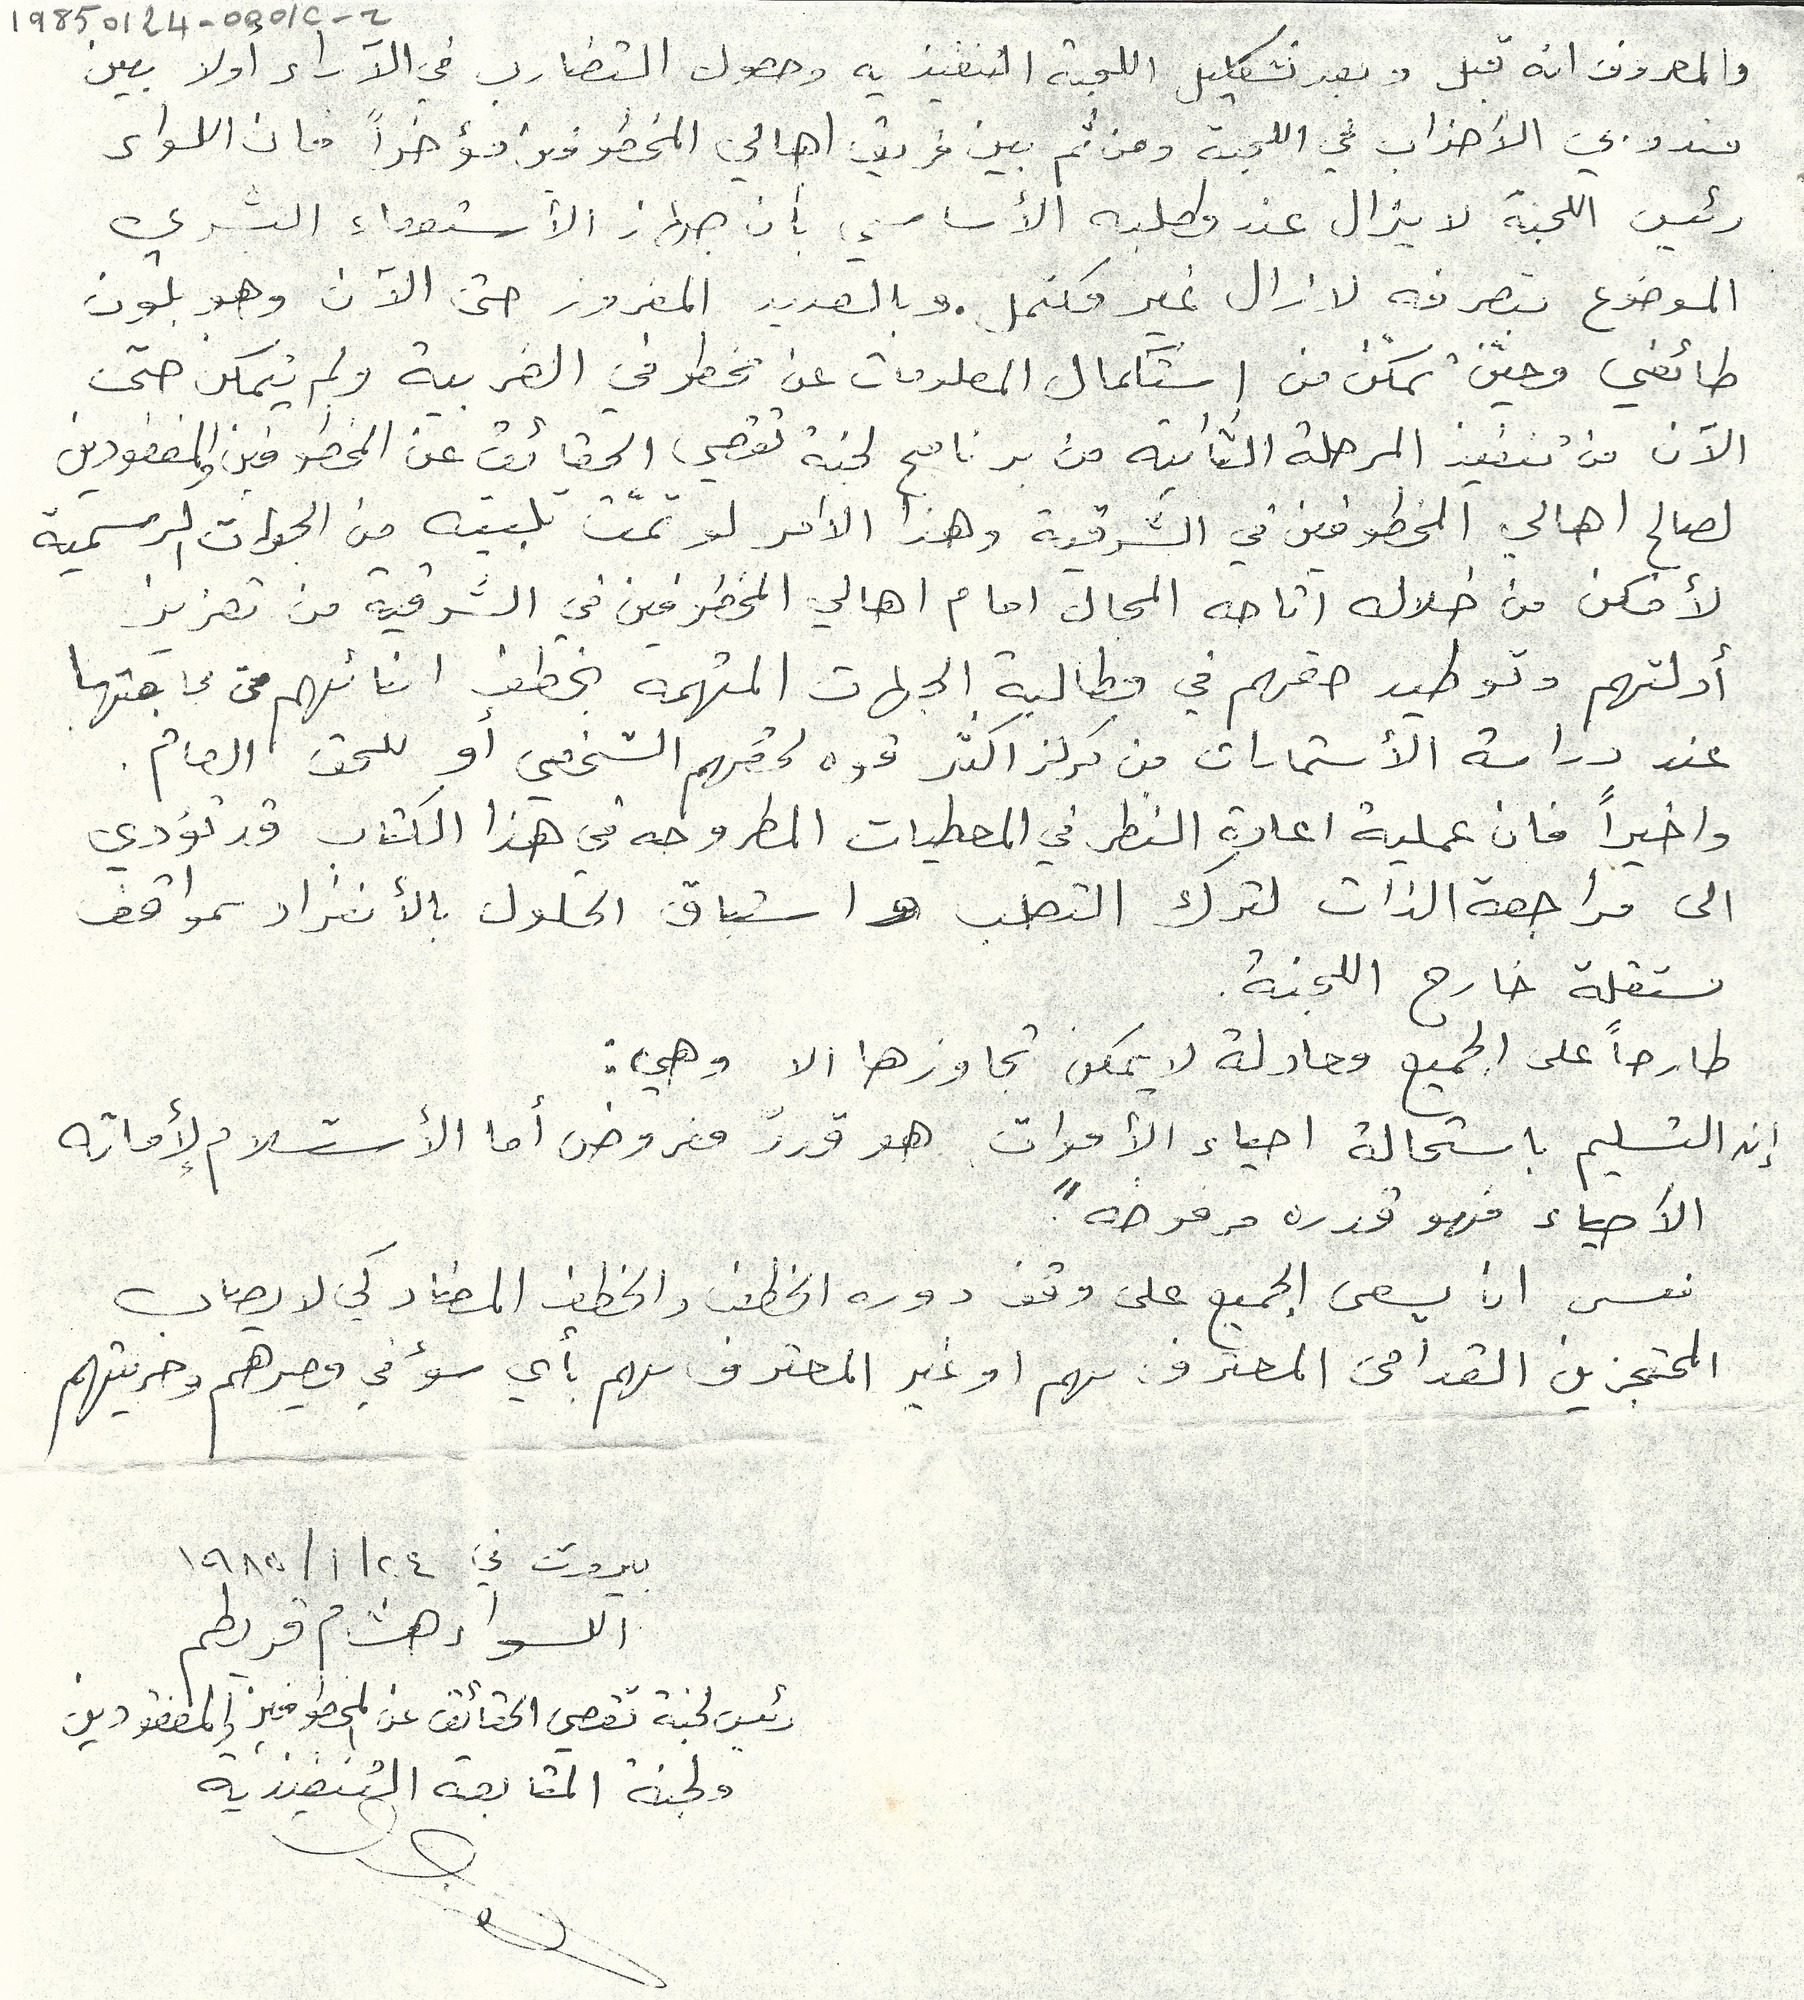 19850124-0001C-2
والمعروف انه قبل وبعد تشكيل اللجنة التنفيذيه وحصول التضارب في الآراء أولا بين
مندوبي الأحزاب في اللجنة ومن ثم بين فريق اهالي المخطوفين مؤخراً فان اللواء
رئيس اللجنة لا يزال عند مطلبه الأساسي بأن جهاز الأستقصاء البشري
الموضوع بتصرفه لا زال غير مكتمل. وبالعديد المفروز حتى الآن وهو بلون
طائفي وحيّن تمكّن من استكمال المعلومات عن مخطوفي الغربية ولم يتمكن حتى
الآن من تنفيذ المرحلة الثانية من برنامج لجنة تقصي الحقائق عن المخطوفين والمفقودين
لصالح اهالي المخطوفين في الشرقية وهذا الأمر لو تمّت تلبيته من الجهات الرسمية
لأمكن من خلاله اتاحه المجال امام اهالي المخطوفين في الشرقية من تعزيز
أدلتهم وتوطيد حقهم في مطالبة الجهات المتهمه بخطف ابنائهم
عند دراسة الأستمارات من مركز اكثر قوه لحقهم الشخصي أو للحق العام.
واخيراً فان عملية اعادة النظر في المعطيات المطروحه في هذا الكتاب قد تؤدي
الى مراجعة الذات لترك التصلب و استباق الحلول بالأنفراد بمواقف
مستقلة خارج اللجنة.
طارحاً على الجميع معادلة لا يمكن تجاوزها الا وهي:
إن التسليم باستحالة احياء الأموات هو قدرٌ مفروض أما الأستسلام لإماته
الأحياء فهو قدره مرفوضه".
نعسى ان يسعى الجميع على وقف دوره الخطف والخطف المضاد كي لا يصاب
المحتجزين القدامى المعترف بهم او غير المعترف بهم بأي سوؤ في مصيرهم وحريتهم
بيروت في ٢٤/١/١٩٨٥
اللواء هشام قريطم
رئيس لجنة تقصي الحقائق عن المخطوفين والمفقودين
ولجنة المتابعة التنفيذية